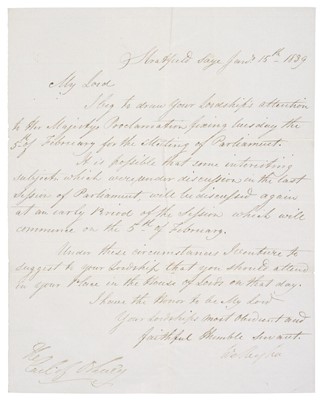 Strathfield Saye Jany 15th 1839
My Lord
I beg to draw your Lordship's attention
to Her Majestys Proclamation fixing Tuesday the
5th of February for the Meeting of Parliament.
It is possible that some interesting
subjects which were under discussion in the last
Session of Parliament, will be discussed again
at an early Period of the Session which will
commence on the 5th of February.
Under these circumstances I venture to
suggest to your Lordship that you should attend
in your Place in the House of Lords on that day.
I have the Honor to be My Lord
Your Lordships most Obedient and
faithful Humble Servant
Wellington
The
Earl of